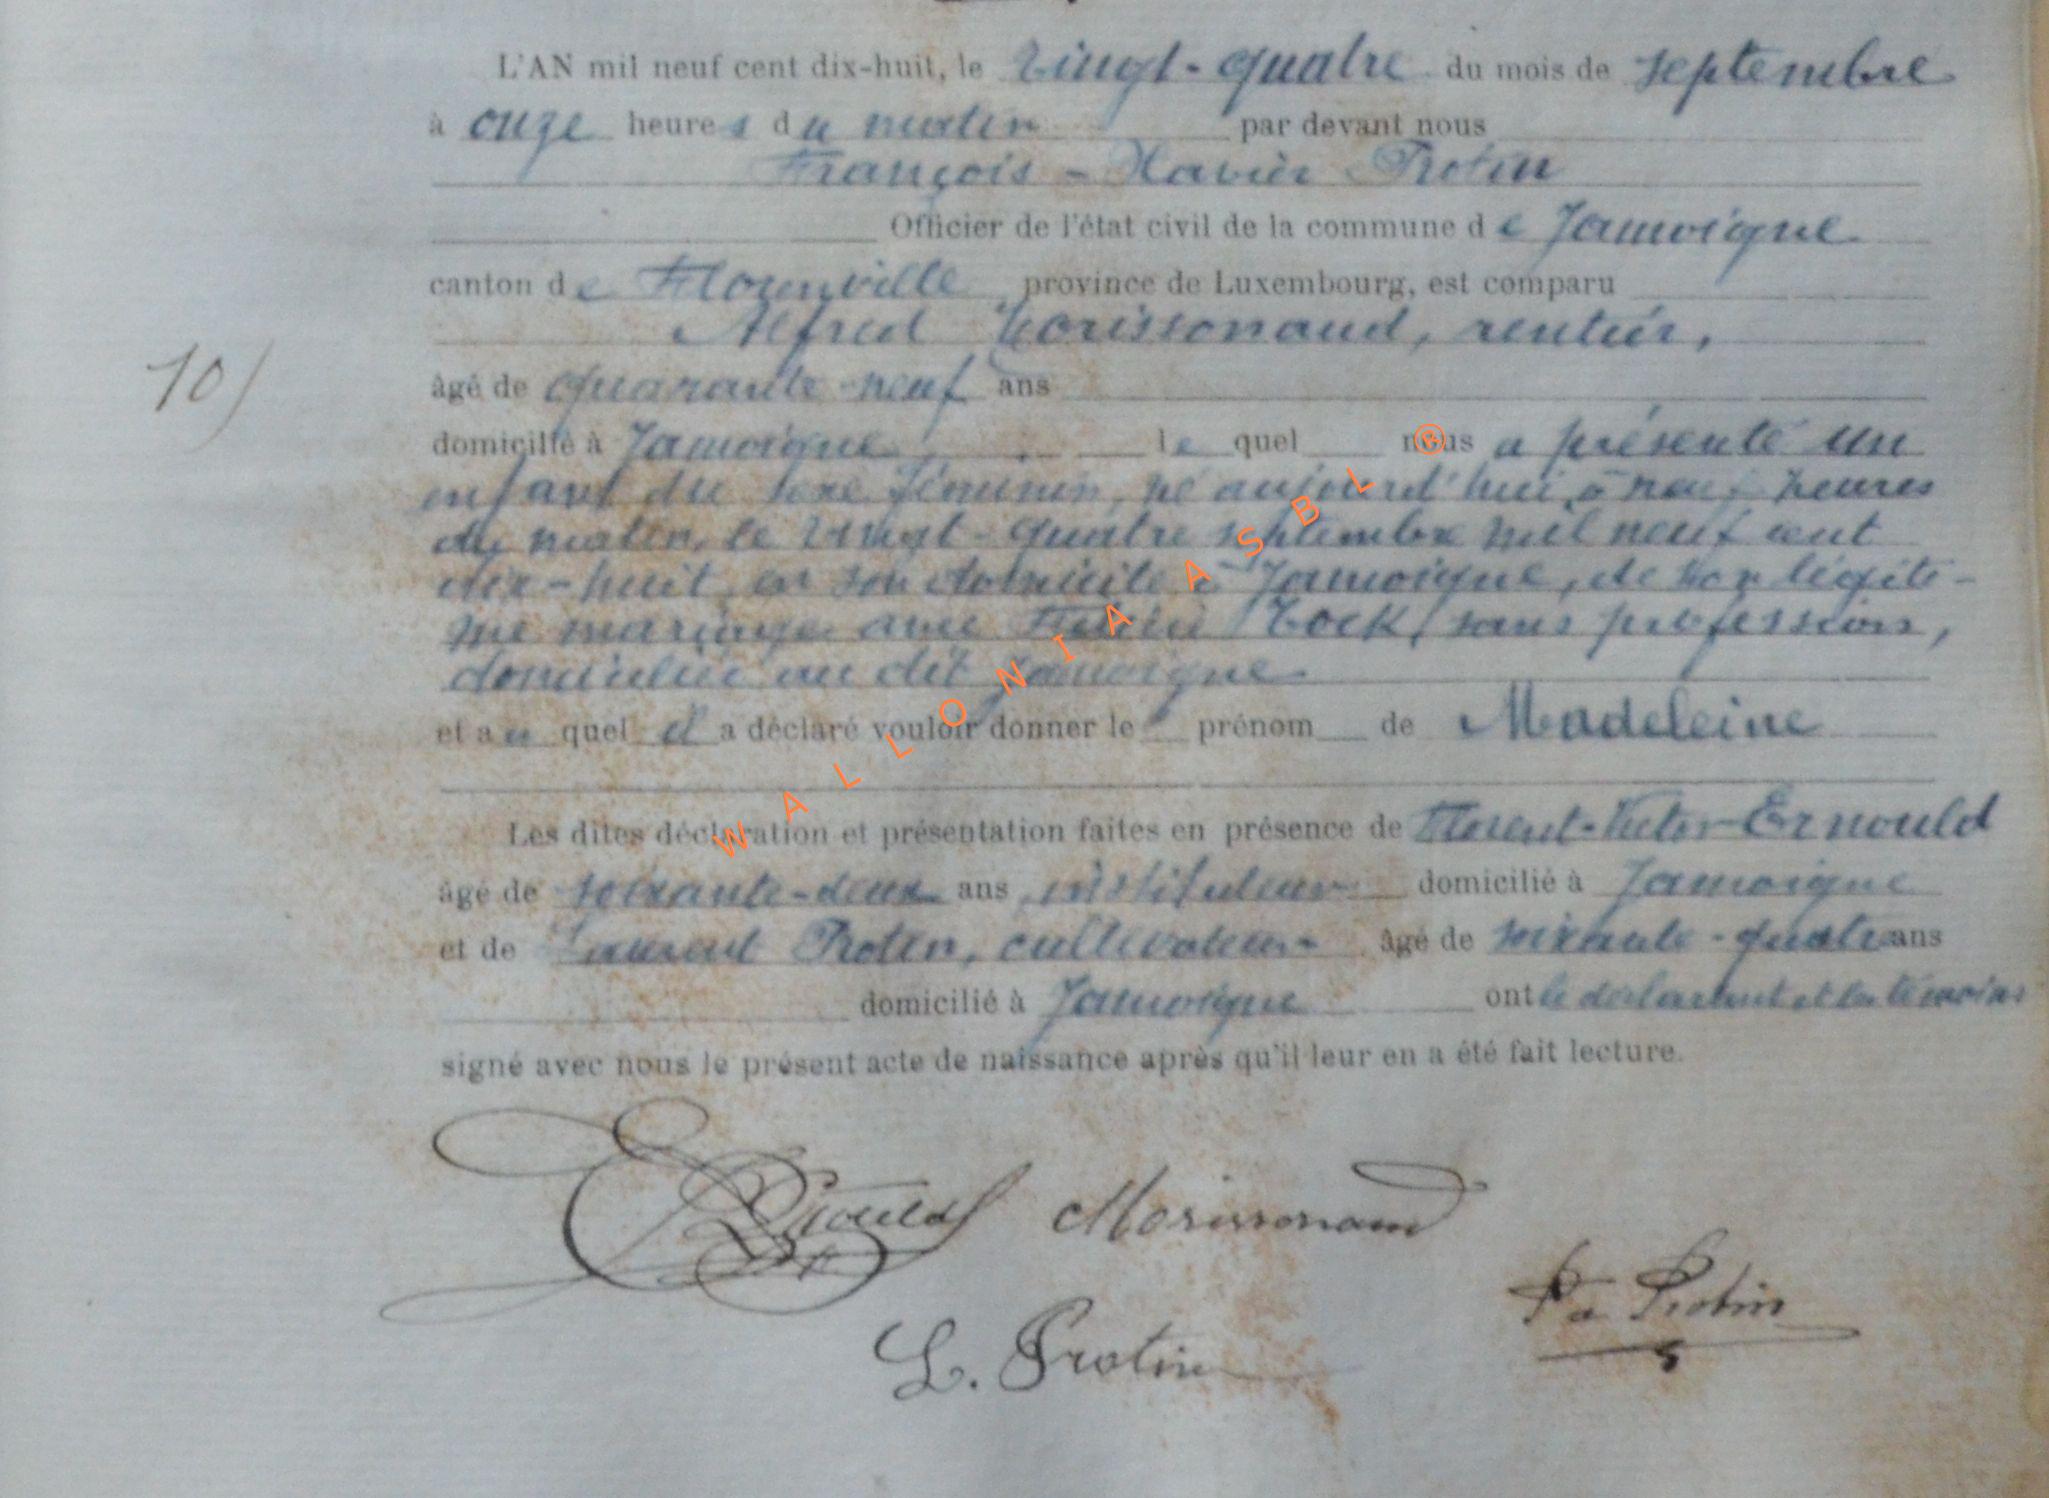 L'AN mil neuf cent dix-huit, le vingt-quatre du mois de septembre
à onze heures du matin par devant nous
François-Xavier Protin
Officier de l'état civil de la commune de Jamoigne
canton de Florenville province de Luxembourg, est comparu
Alfred Morissonaud, rentier,
10/
âgé de quarante-neuf ans
domicilié à Jamoigne, lequel nous a présenté un
enfant du sexe féminin, né aujourd'hui à neuf heures
du matin, le vingt-quatre septembre mil neuf cent
dix-huit, en son domicile à Jamoigne, de son légiti-
me mariage avec Tock, sans profession,
domiciliée au dit Jamoigne
et auquel il a déclaré vouloir donner le prénom de Madeleine
Les dites déclaration et présentation faites en présence de Florent-Victor Ernould
âgé de soixante-deux ans, instituteur domicilié à Jamoigne
et de Laurent Protin, cultivateur âgé de soixante-quatre ans
domicilié à Jamoigne ont le déclarant et les témoins
signé avec nous le présent acte de naissance après qu'il leur en a été fait lecture.
Ernould Morissonaud
Protin
L. Protin
WALLONIA ASBL ®